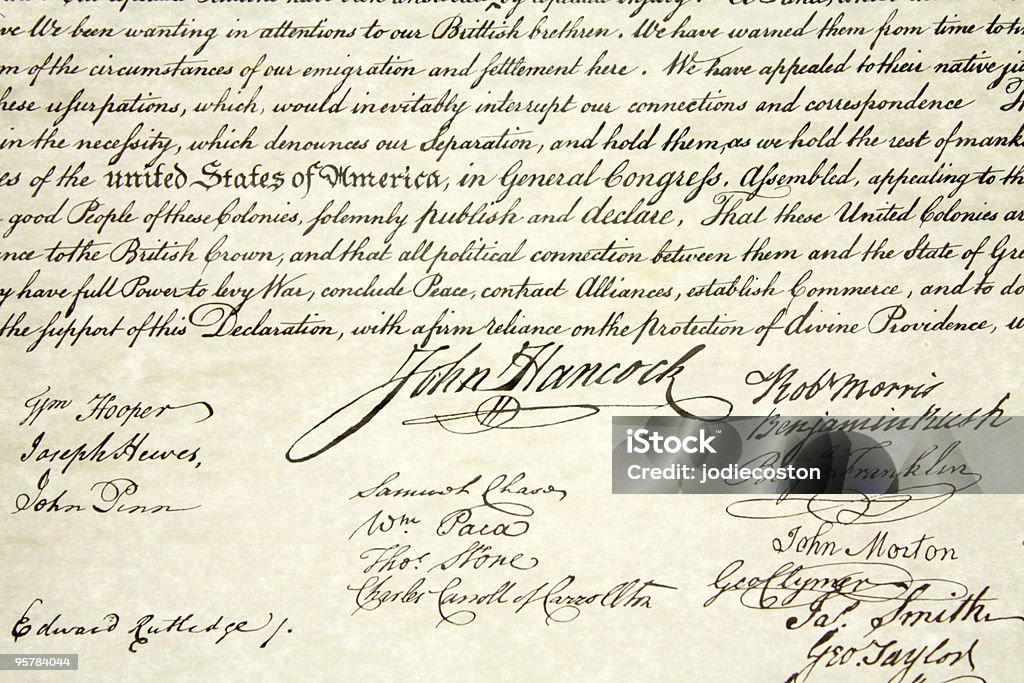 ve We been wanting in attentions to our Brittish brethren. We have warned them from time to
m of the circumstances of our emigration and settlement here. We have appealed to their native
hese usurpations, which, would inevitably interrupt our connections and correspondence
in the necessity, which denounces our Separation, and hold them, as we hold the rest of
es of the united States of America, in General Congress, Assembled, appealing to
good People of these Colonies, solemnly publish and declare, That these United Colonies
nce to the British Crown, and that all political connection between them and the State of
y have full Power to levy War, conclude Peace, contract Alliances, establish Commerce, and to do
the support of this Declaration, with a firm reliance on the protection of divine Providence,
John Hancock
Robt Morris
Wm Hooper
Benjamin Rush
Joseph Hewes,
iStock™
Credit: jodiecoston
Franklin
John Penn
Samuel Chase
Wm Paca
Thos Stone
Charles Carroll of Carrollton
John Morton
Geo Clymer
Jas. Smith
Geo. Taylor
Edward Rutledge /.
95784044